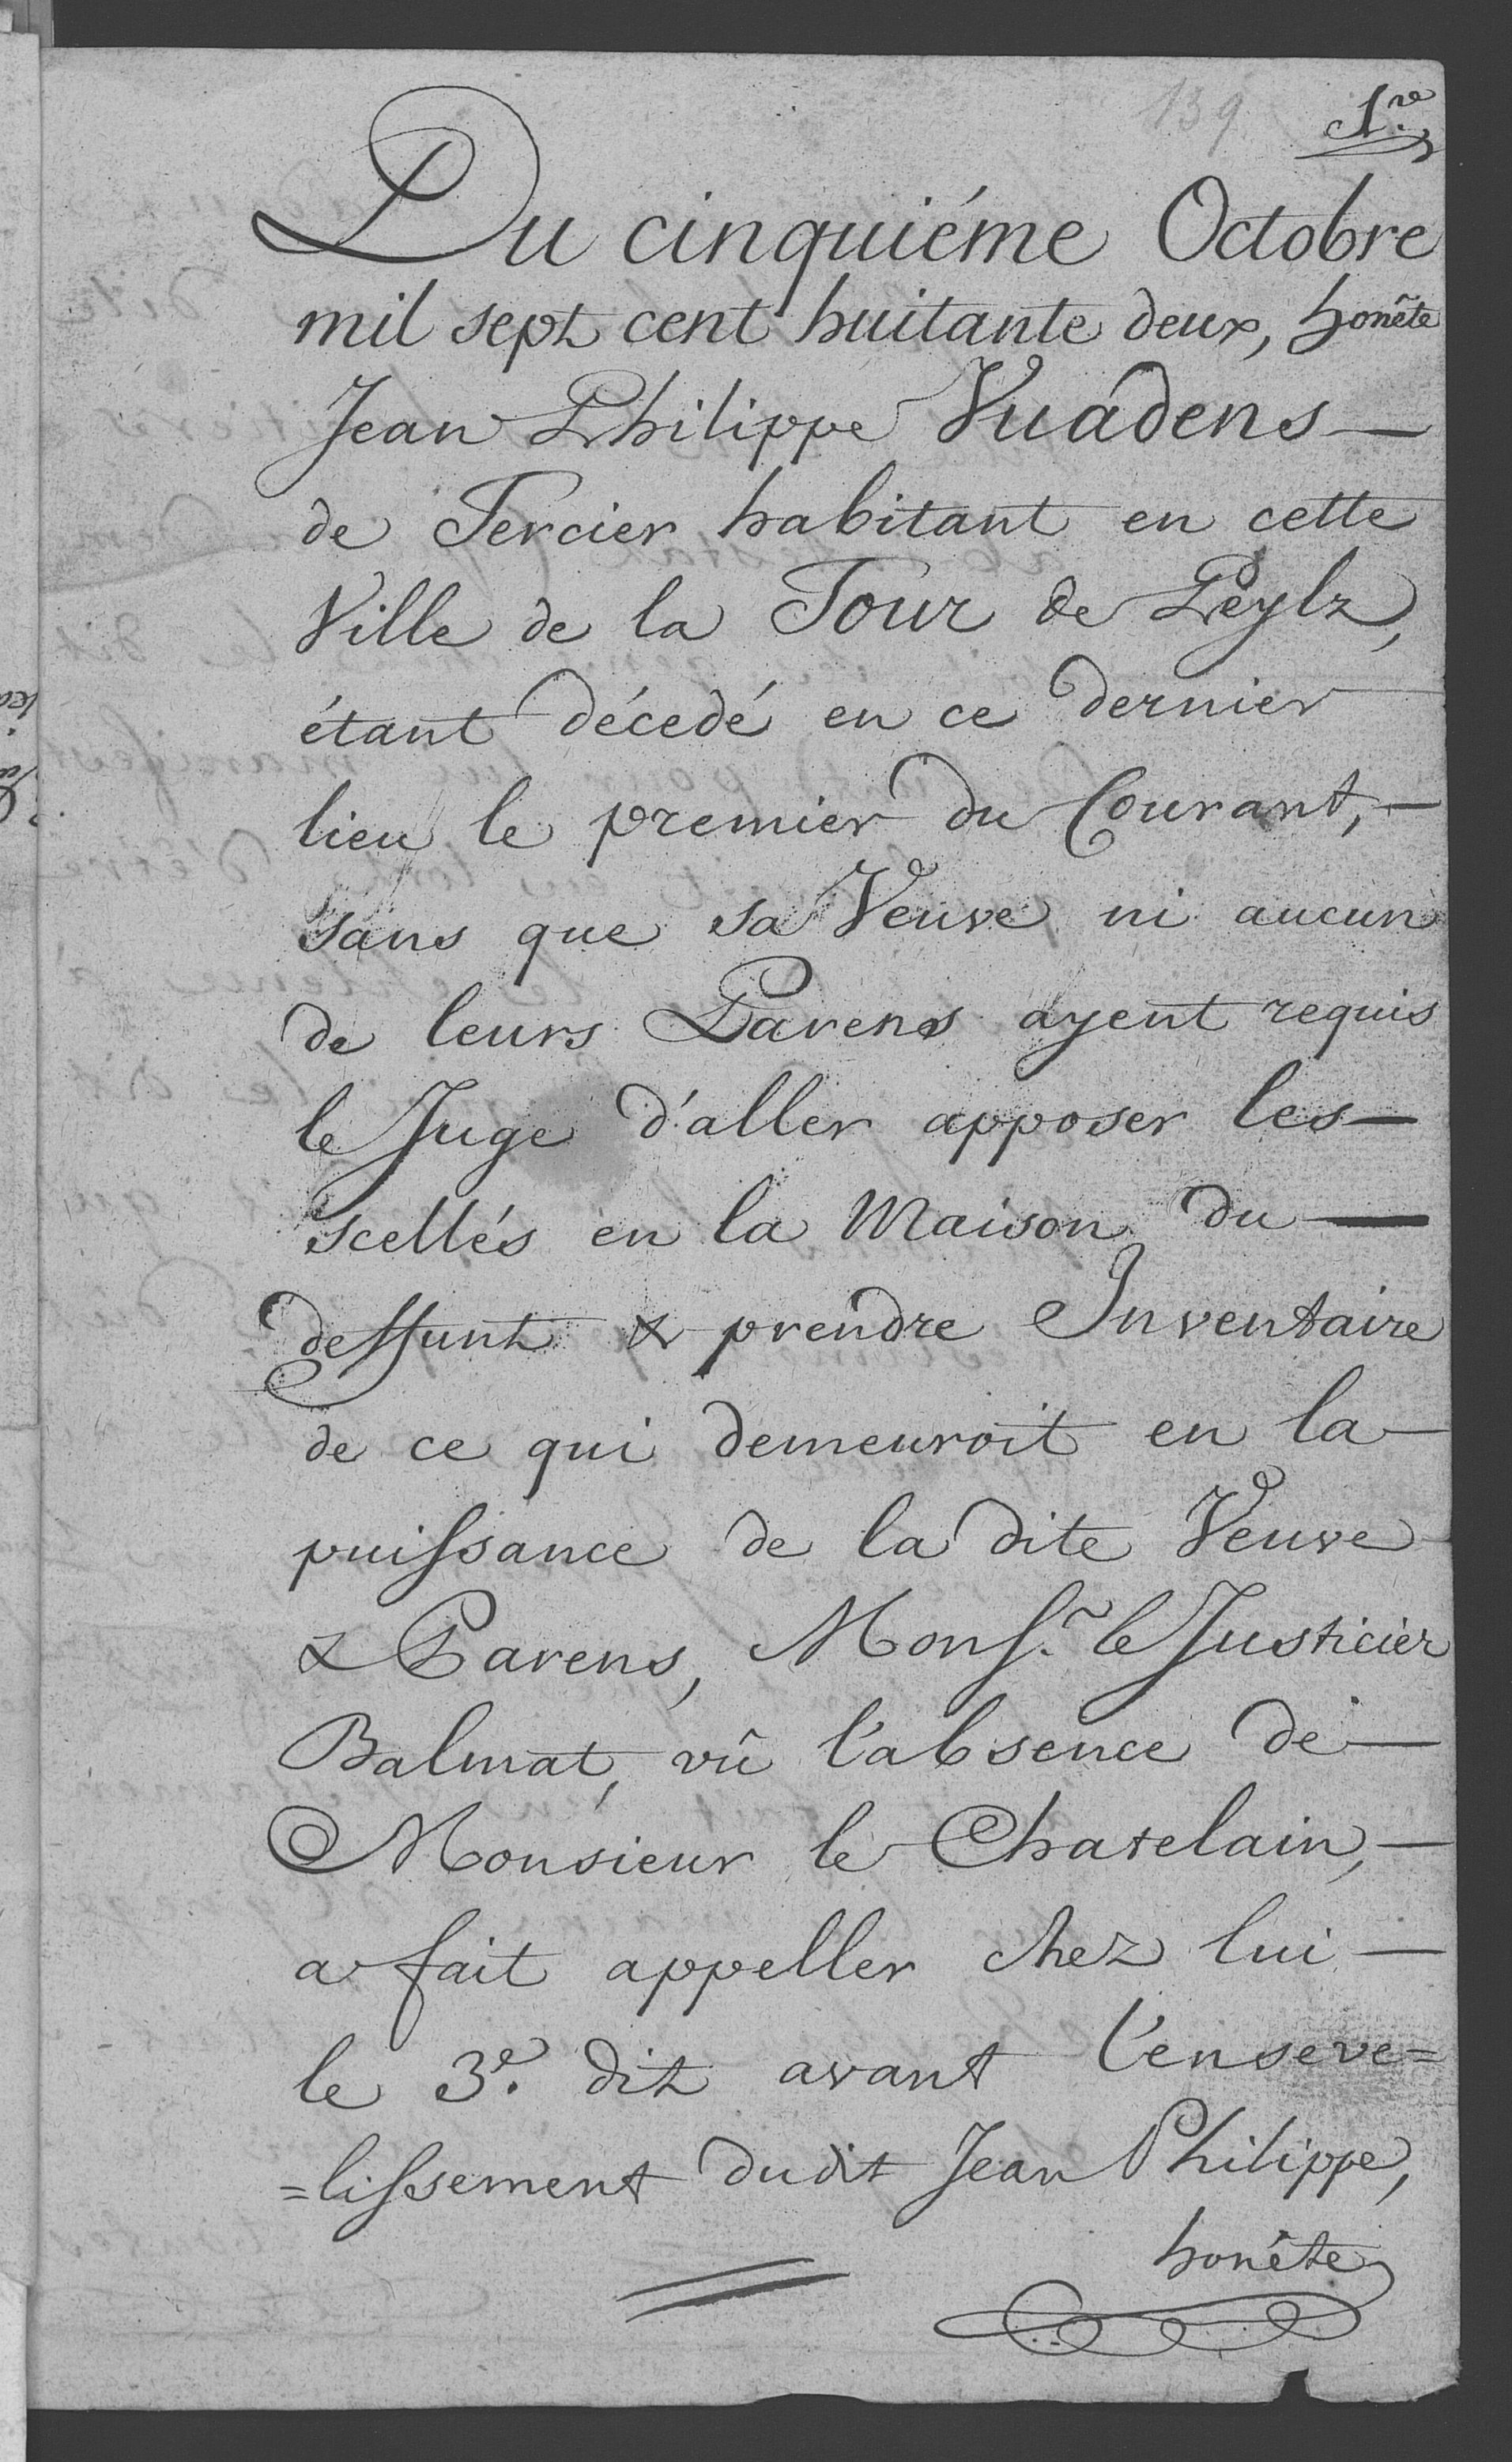 139. 1.re
Du cinquiéme Octobre
mil sept cent huitante deux, honẽte
Jean Philippe Vuadens —
de Tercier habitant en cette
Ville de la Tour de Peylz,
étant décedé en ce dernier
lieu le premier du Courant, —
sans que sa Veuve ni aucun
de leurs Parens ayent requis
le Juge d'aller apposer les —
scellés en la Maison du —
deffunt & prendre Inventaire
de ce qui demeuroit en la —
puissance de la dite Veuve
& Parens, Monsr. le Justicier
Balmat, vû l'absence de —
Monsieur le Chatelain, —
a fait appeller chez lui —
le 3e. dit avant l'enseve=
=lissement dudit Jean Philippe,
honête